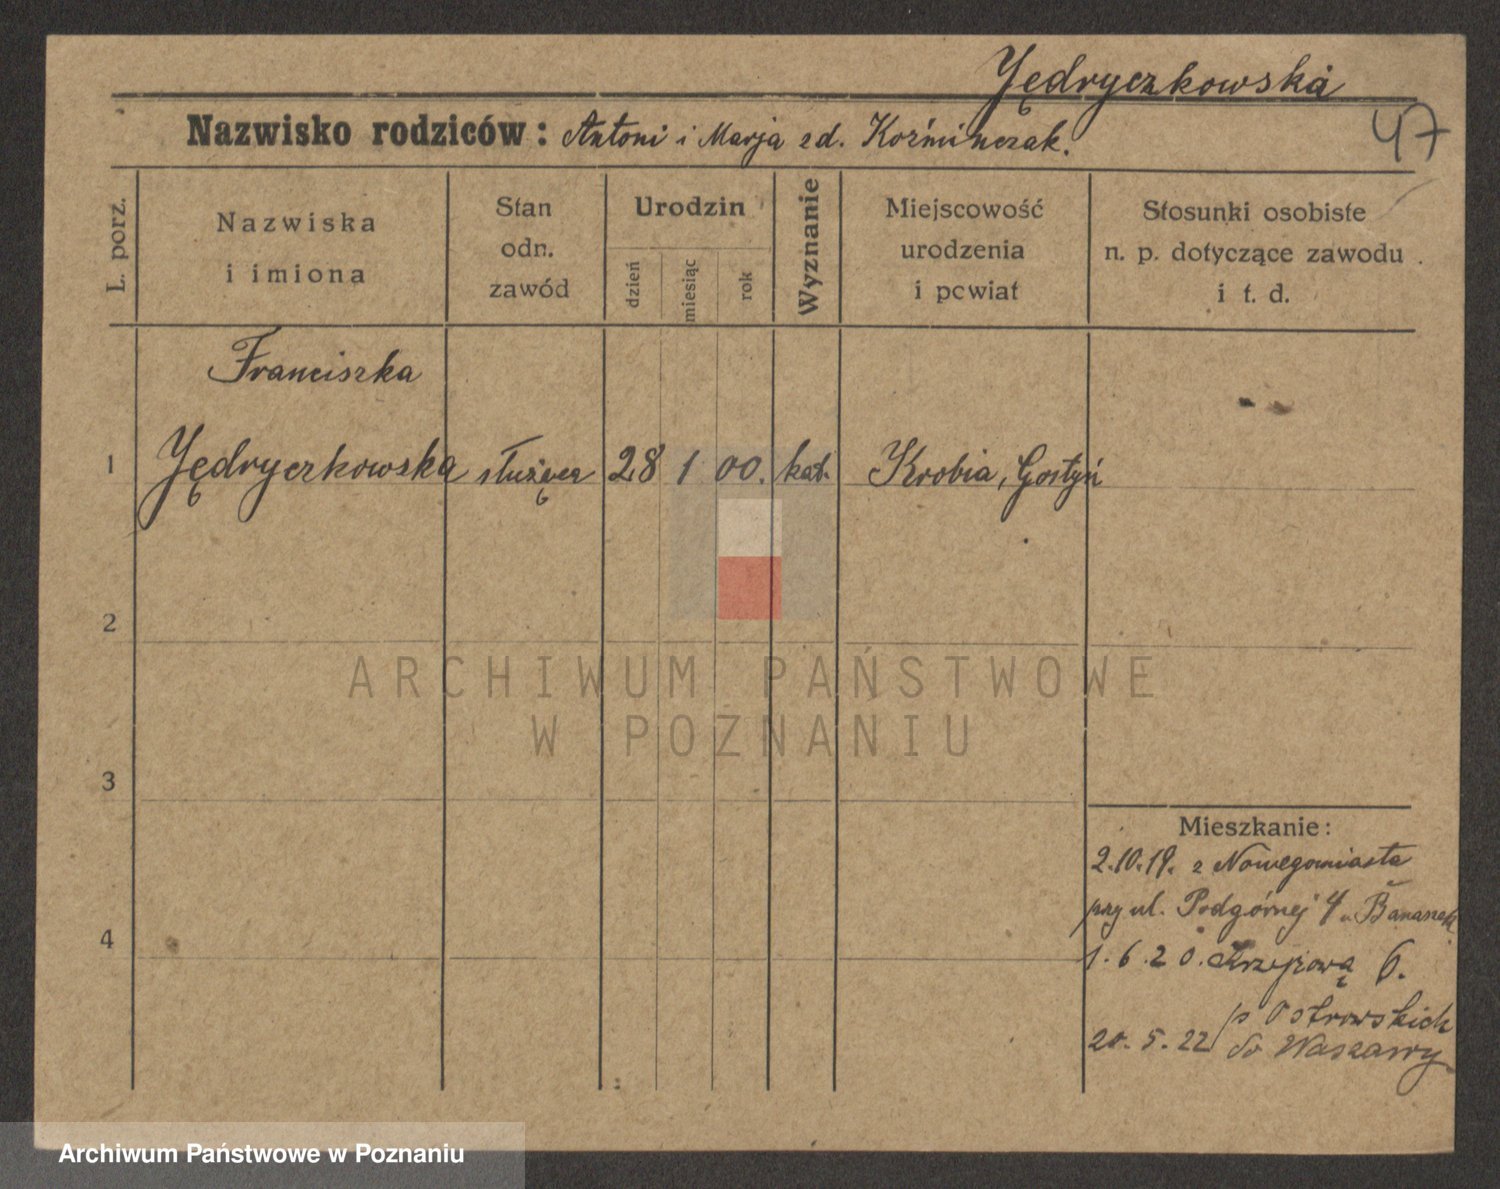 Jędryczkowska
47
Nazwisko rodziców: Antoni i Marja zd. Koźminczak.
L. porz.
Nazwiska
i imiona
Stan
odn.
zawód
Urodzin
dzień
miesiąc
rok
Wyznanie
Miejscowość
urodzenia
i pcwiat
Stosunki osobiste
n. p. dotyczące zawodu
i t. d.
Franciszka
1 Jędryczkowska służąca 28 1 00. kat. Krobia, Gostyń
2
ARCHIWUM PAŃSTWOWE
W POZNANIU
3
Mieszkanie:
2.10.19. z Nowegomiasta
przy ul. Podgórnej 4 u Banaszek
4
1.6.20. 6.
p Ostrowskich
20.5.22 do Waszawy
Archiwum Państwowe w Poznaniu